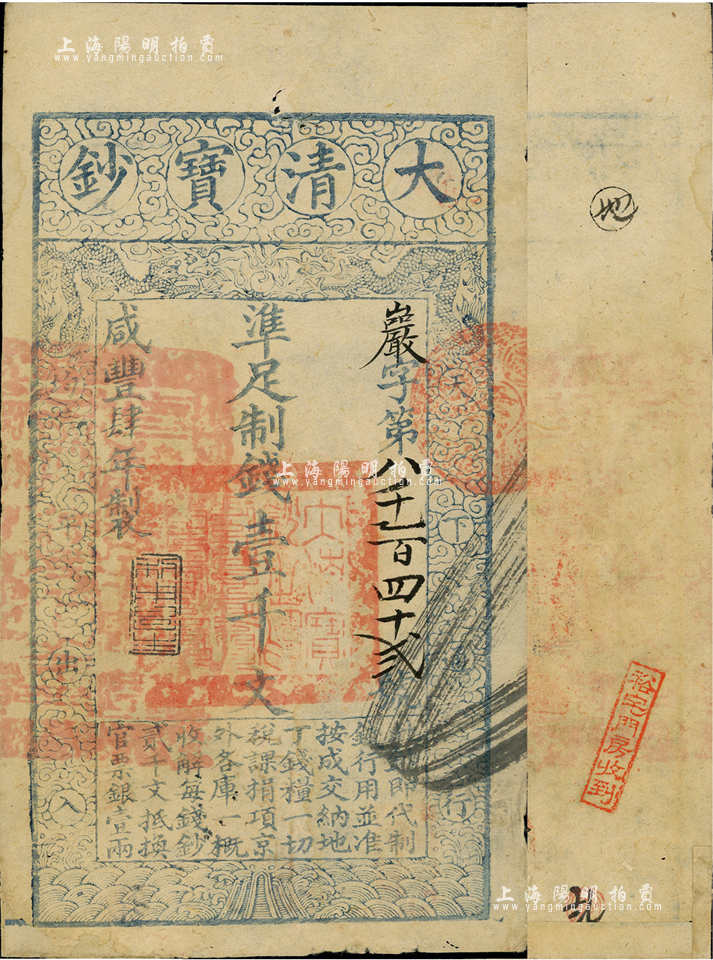 上海陽明拍賣
www.yangmingauction.com
大清寶鈔
天下通行
均平出入
巖字第八千一百四十貳號
準足制錢壹千文
咸豐肆年製
此鈔即代制
錢行用並准
按成交納地
丁錢糧一切
稅課捐項京
外各庫一概
收解每錢鈔
貳千文抵換
官票銀壹兩
地
裕宅門房收到
上海陽明拍賣
www.yangmingauction.com
上海陽明拍賣
www.yangmingauction.com